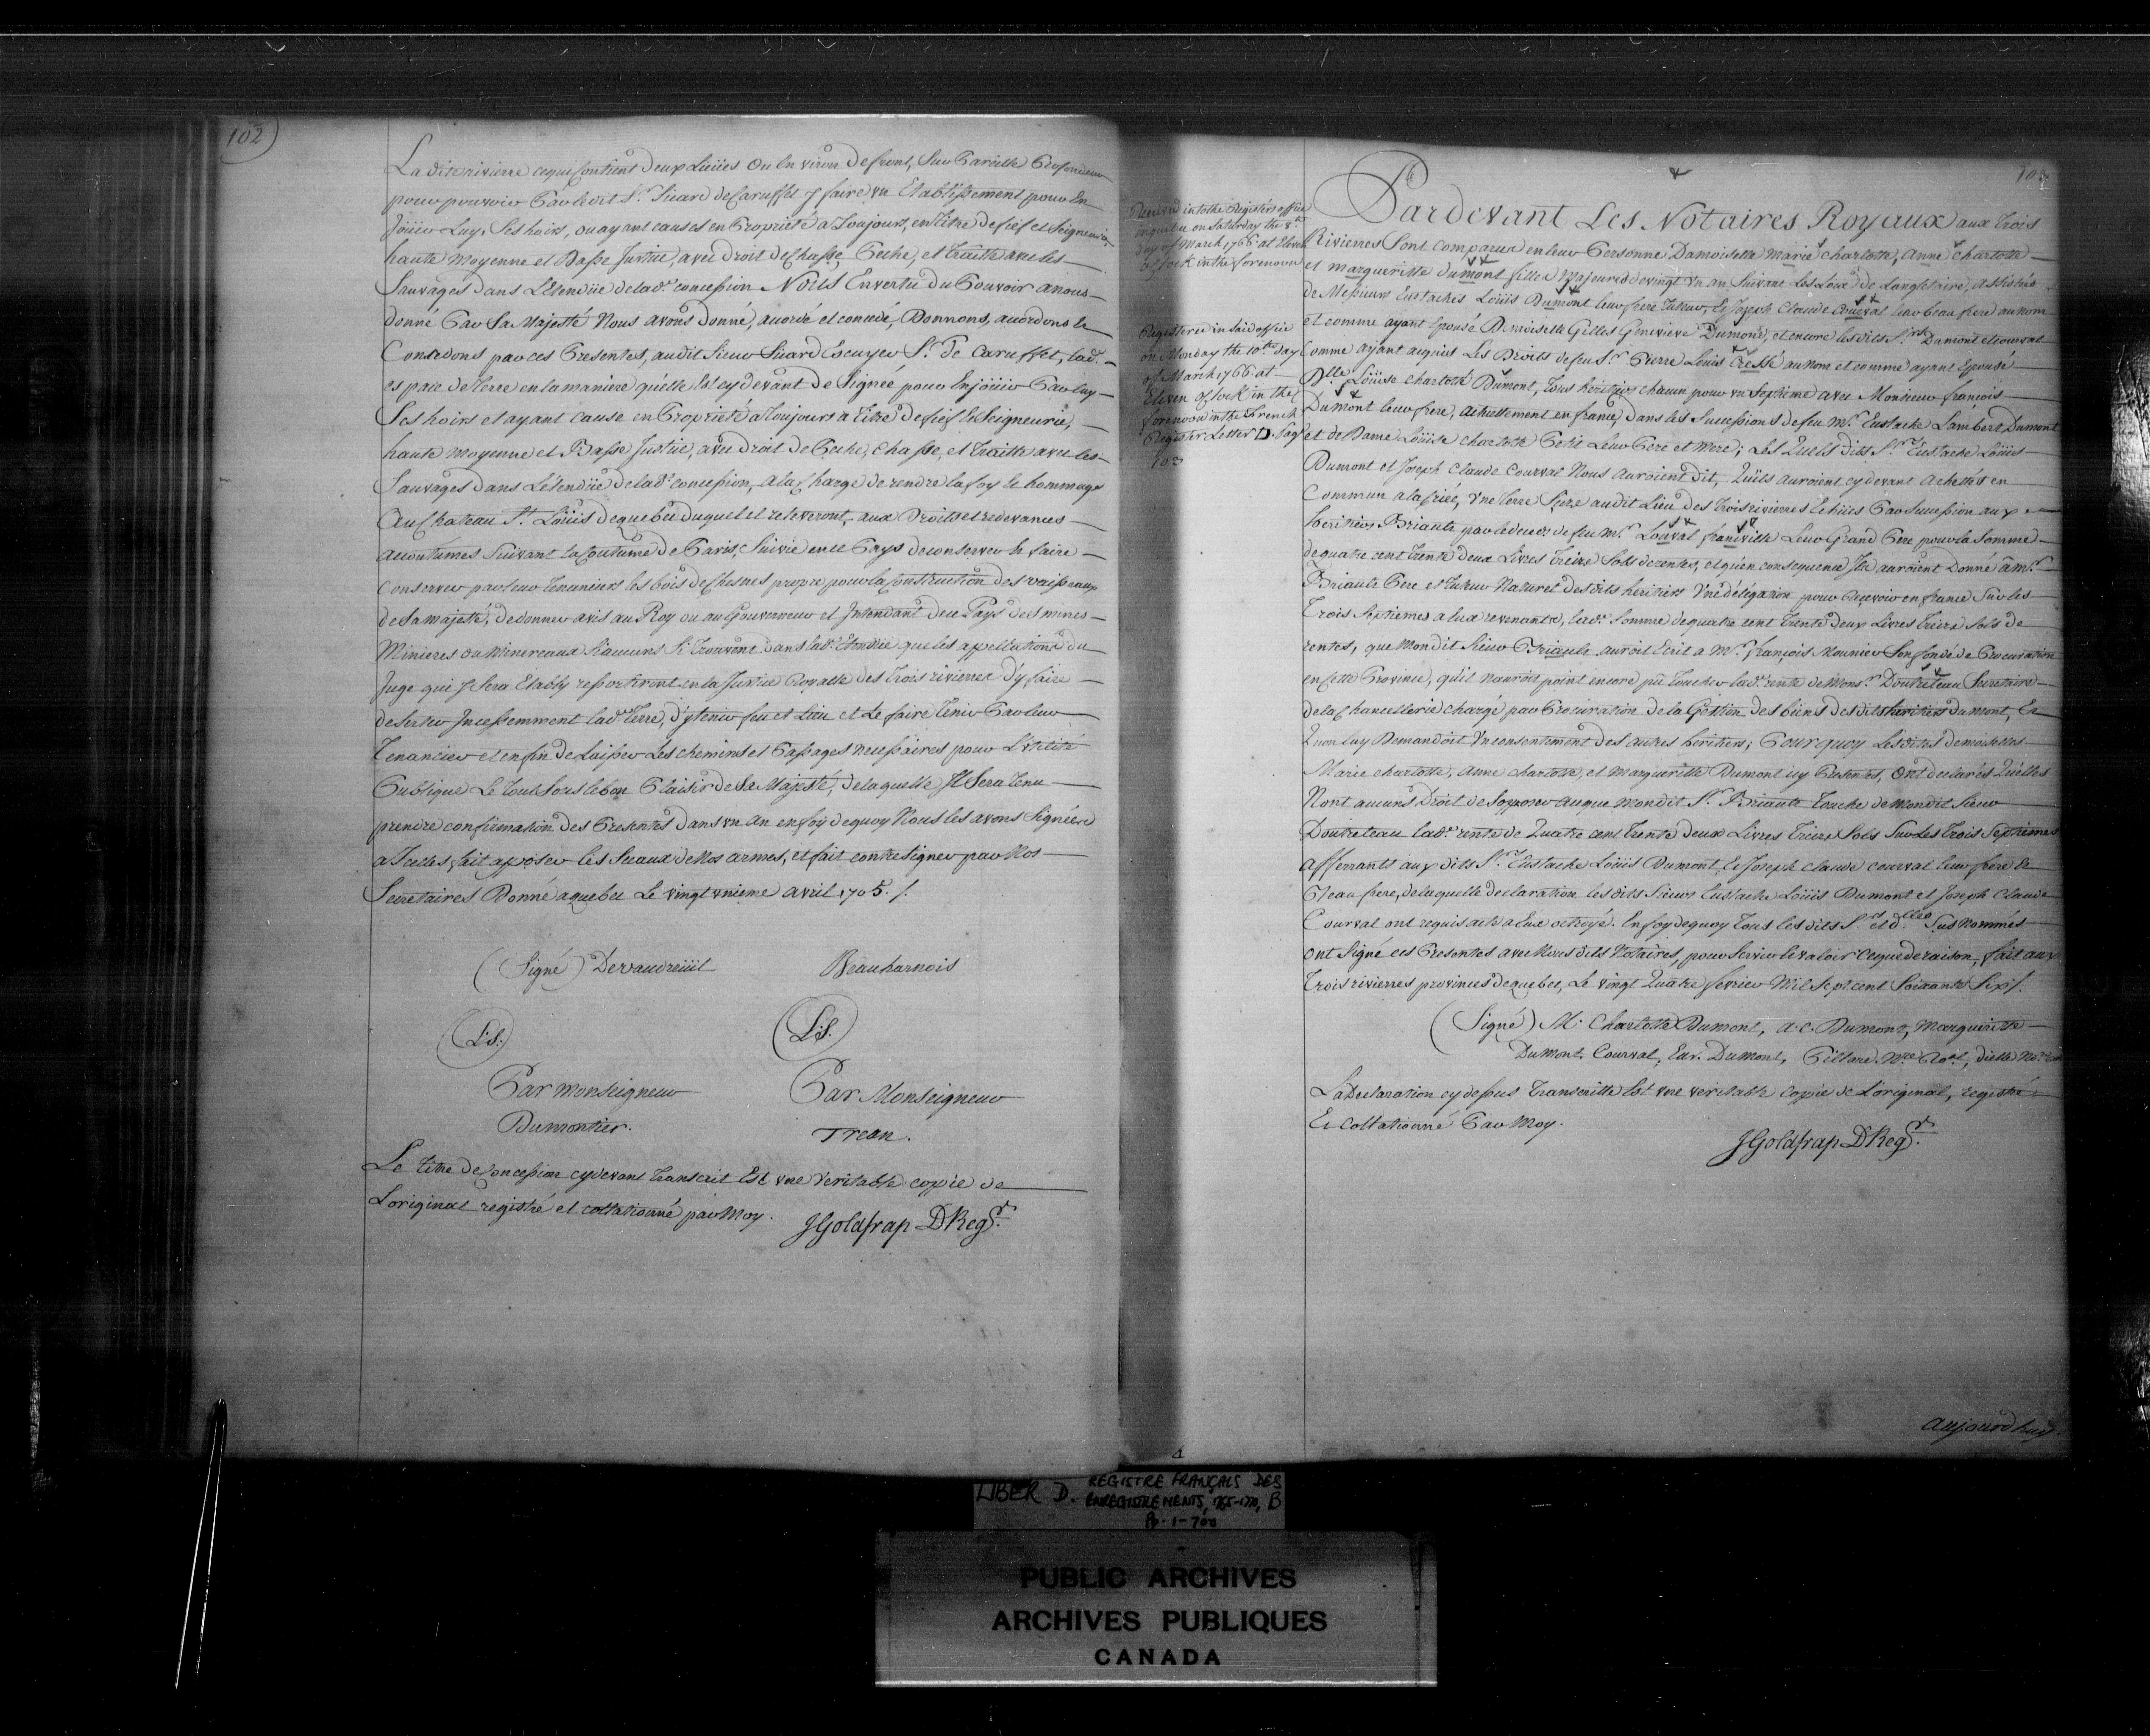 102
La dite riviere ce qui contient deux Lieües ou Environ de front, Sur Pareille Profondeur
pour pouvoir Par ledit Sr. Sicard de Caruffel y faire un Etablissement pour En
Joüir Luy, Ses hoirs, ou ayant causes en Proprieté a Toujours, en titre de fief et Seigneurie
haute Moyenne et Basse Justice, avec droit de Chasse, Peche, et Traitte avec les
Sauvages dans L'Etendüe de lade. concession Nous En vertu du Pouvoir a nous
donné Par Sa Majesté Nous avons donné, accordé et concedé, Donnons, accordons et
Concedons par ces Presentes, audit Sieur Sicard Escuyer Sr. De Caruffel, lade.
espace de Terre en la maniere qu'elle Est cy devant designée pour En joüir Par luy
Ses hoirs et ayant cause en Proprieté a Toujours a Titre de fief et Seigneurie,
haute Moyenne et Basse Justice, avec droit de Peche, Chasse, et Traitte avec les
Sauvages dans L'étendüe de lade. concession, a la Charge de rendre la foy et hommage
au Chateau St. Loüis de quebec duquel il releveront, aux Droits et redevances
accoutumés Suivant la Coutume de Paris, Suivie en ce Pays de conserver et faire
Conserver par leur Tenanciers les bois de Chesnes propre pour la Construction des vaisseaux
de Sa majesté, de donner avis au Roy ou au Gouverneur et Intendant de ce Pays des mines
Minieres ou Minereaux Si aucuns Se Trouvent dans lade. Etendüe que les appellations du
Juge qui y Sera Etably ressortiront en la Justice Royalle des Trois rivieres d'y faire
deserter Incessemment lade. Terre, d'y tenir feu et Lieu et Le faire Tenir Par leur
Tenancier et enfin de Laisser Les Chemins et Passages necessaires pour L'Utilité
Publique Le tout Sous le bon Plaisir de Sa Majesté, de laquelle Il Sera Tenu
prendre confirmation des Presentes dans un an en foy de quoy Nous les avons Signées
a Icelles, fait apposer les Sceaux de Nos armes, et fait contresigner par Nos
Secretaires Donné a quebec Le vingt unieme avril 1705. /.
(Signé) Devaudreüil Beauharnois
L.S. L.S.
Par Monseigneur Par Monseigneur
Dumontier. Trean.
Le titre de Concession cy devant Transcrit Est une Veritable copie de
L'original registré et collationné par Moy. JGoldfrap DRegr.
103
Received into the Registers office
on Saturday the 8th
day of March 1766 at Eleven
o'Clock in the forenoon
Registered in said office
on Monday the 10th day
of March 1766 at
Eleven o'Clock in the
forenoon in the French
Register Letter D. Page
103
Pardevant Les Notaires Royaux aux Trois
Rivierres Sont comparues en leur Personne Damoiselle Marie Charlotte, Anne Charlotte
et Margueritte dumont filles Majeures de vingt un an, Suivant Les Loix de Langleterre, assistées
de Messieurs Eustaches Loüis Dumont leur frere Tuteur, et Joseph Claude Courval leur beau frere au nom
et comme ayant Epousé Demoiselle Gilles Genevieve Dumond, et encore les dits Srs. Dumont et Courval
Comme ayant acquis Les Droits de feu Sr. Pierre Louis Cressé au nom et comme ayant Epousé
Dlle Loüise Charlotte Dumont, Tous heritiers chacun pour un Septieme avec Monsieur françois
Dumont leur frere, actuellement en france, dans les Successions de feu Mr. Eustache Lambert Dumont
et de Dame Loüise Charlotte Petit Leur Pere et Mere; Les Quels dits Sr. Eustache Loüis
Dumont et Joseph Claude Courval Nous auroient dit, Qu'ils auroient cy devant achettés en
Commun a la Criée, Une Terre Sise audit Lieu des Trois rivierres Echües Par Succession aux
heritiers Briault par le decès de feu Mr. Courval Grandville Leur Grand Pere pour la Somme
de quatre cent Trente deux Livres Treize Sols de rentes, et qu'en consequence Ils auroient Donné a Mr.
Briault Pere et Tuteur Naturel des dits heritiers Une délégation pour recevoir en france Sur les
Trois Septiemes a Eux revenants, lade. Somme de quatre cent Trente deux Livres Treize Sols de
rentes, que Mondit Sieur Briault auroit Ecrit a Mr. françois Mounier Son fondé de Procuration
en Cette Province, qu'il n'auroit point encore pû Toucher lade. rente de Monsr. Doutreleau Secretaire
de la Chancellerie chargé par Procuration de la Gestion des biens des dits heritiers dumont, Et
Qu'on Luy Demandoit Un consentement des autres heritiers; Pourquoy Les dites demoiselles
Marie Charlotte, Anne Charlotte, et Margueritte Dumont icy Presentes, Ont declarés Qu'elles
N'ont aucuns Droit de S'opposer a ce que Mondit Sr. Briault Touche de Mondit Sieur
Doutreleau lade. rente de Quatre cent Trente deux Livres Treize Sols Sur Les Trois Septiemes
afferrants aux dits Sr. Eustache Loüis Dumont, et Joseph Claude Courval leur frere et
Beau frere, de laquelle declaration les dits Sieurs Eustache Loüis Dumont et Joseph Claude
Courval ont requis acte a Eux octroyé. En foy de quoy Tous les dits Srs. et dlles Sus Nommés
ont Signé ces Presentes avec Nous dits Notaires, pour Servir et valoir ce que de raison, fait aux
Trois rivierres province de quebec, Le vingt Quatre fevrier Mil Sept cent Soixante Six /.
(Signé) M. Charlotte Dumont, A. C. Dumont, Margueritte
Dumont, Courval, Eus. Dumont, Pillard Nre Roal, Dielle Nre
La Declaration cy dessus Transcritte Est une veritable Copie de L'original, registré
Et collationné Par Moy.
JGoldfrap DRegr.
aujourdhuy.
LIBER D. REGISTRE FRANÇAIS DES
ENREGISTREMENTS, 1765-1770, B
Pp. 1-700
PUBLIC ARCHIVES
ARCHIVES PUBLIQUES
CANADA